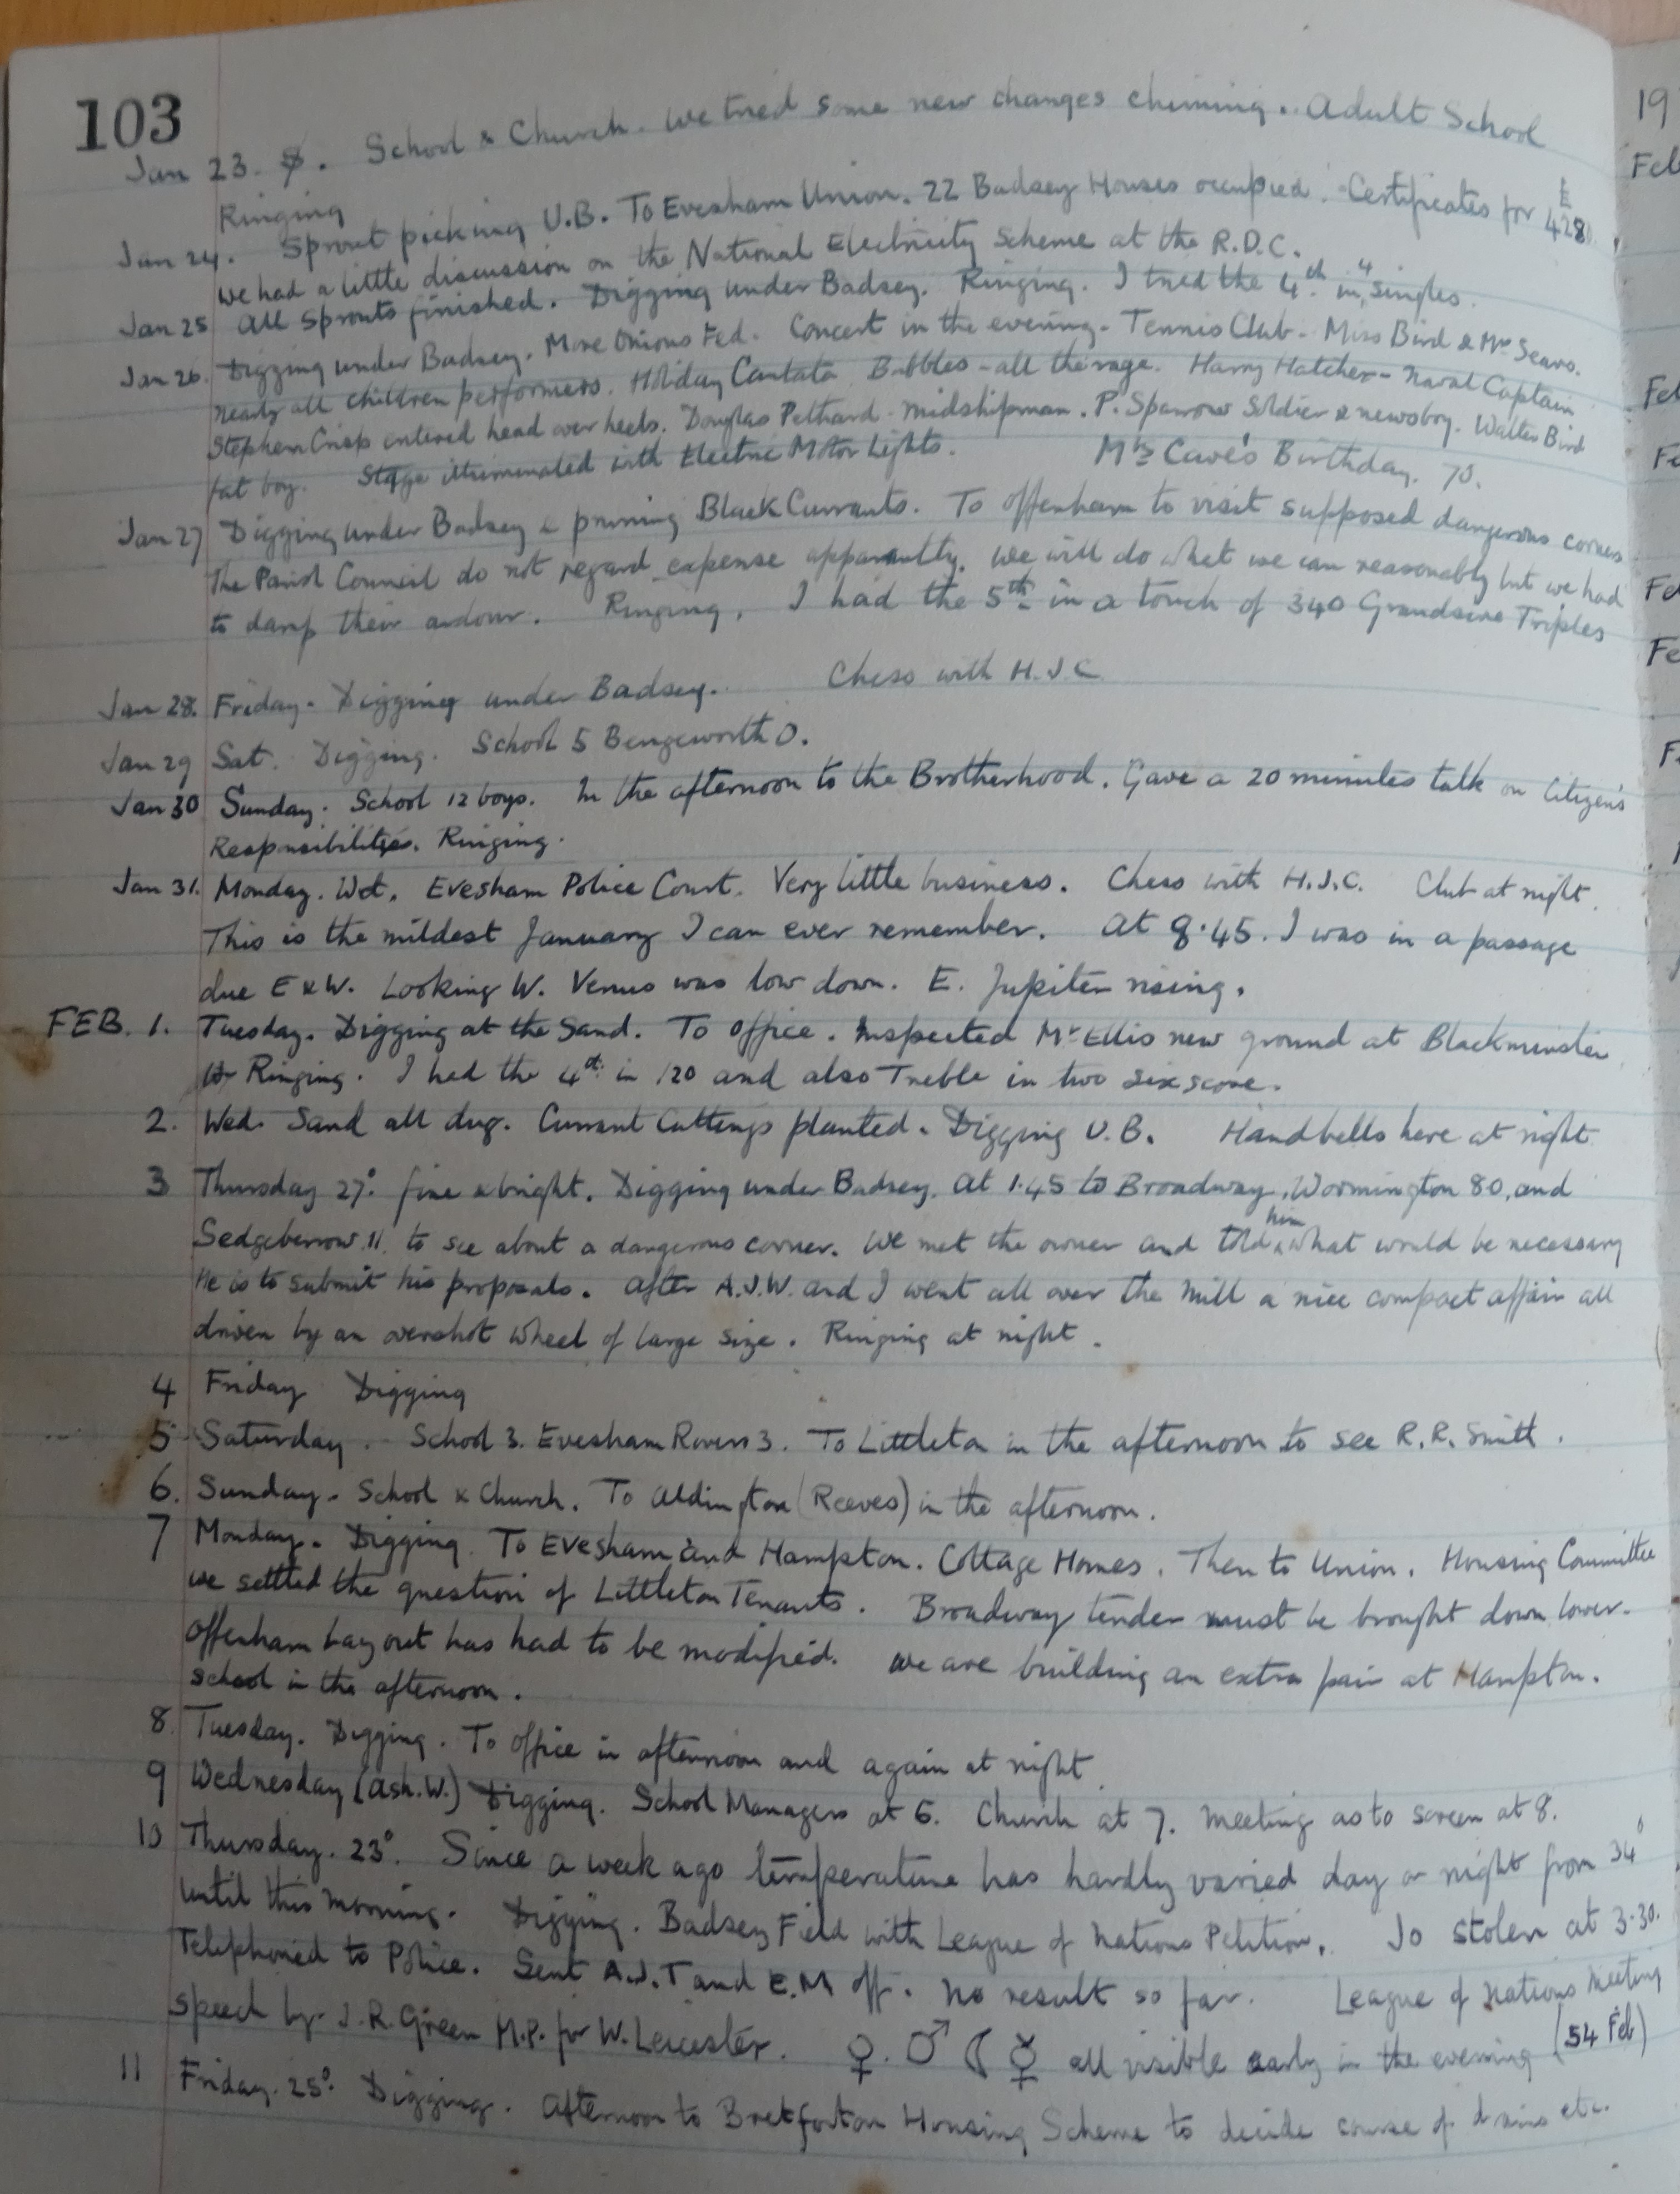 103
Jan 23. S. School & Church. We tried some new changes chiming. Adult School
Ringing
Jan 24. Sprout picking U.B. To Evesham Union. 22 Badsey Houses occupied. Certificates for £428
We had a little discussion on the National Electricity Scheme at the R.D.C.
Jan 25 All Sprouts finished. Digging under Badsey. Ringing. I tried the 4th in 4 singles.
Jan 26. Digging under Badsey. More Onions Fed. Concert in the evening - Tennis Club - Miss Bird & Mrs Sears.
Nearly all children performers. Holiday Cantata Bubbles - all the rage. Harry Hatcher - Naval Captain
Stephen Crisp entered head over heels. Douglas Pethard - Midshipman. P. Sparrow Soldier & newsboy. Walter Bird
fat boy. Stage illuminated with Electric Motor Lights. Mrs Cave's Birthday. 70.
Jan 27 Digging under Badsey & pruning Black Currants. To Offenham to visit supposed dangerous corners
The Parish Council do not regard expense apparently. We will do what we can reasonably but we had
to damp their ardour. Ringing. I had the 5th in a touch of 340 Grandsire Triples
Jan 28. Friday. Digging under Badsey. Chess with H.J.C
Jan 29 Sat. Digging. School 5 Bengeworth 0.
Jan 30 Sunday. School 12 boys. In the afternoon to the Brotherhood. Gave a 20 minutes talk on Citizens
Responsibilities. Ringing.
Jan 31. Monday. Wet. Evesham Police Court. Very little business. Chess with H.J.C. Club at night.
This is the mildest January I can ever remember. At 8.45. I was in a passage
due E & W. Looking W. Venus was low down. E. Jupiter rising.
FEB. 1. Tuesday. Digging at the Sand. To office. Inspected Mr Ellis new ground at Blackminster
Ringing. I had the 4th in 120 and also Treble in two six score.
2. Wed. Sand all dug. Currant Cuttings planted. Digging U.B. Handbells here at night.
3 Thursday 27°. fine & bright. Digging under Badsey. At 1.45 to Broadway, Wormington 80, and
Sedgeberrow 11, to see about a dangerous corner. We met the owner and told him what would be necessary
He is to submit his proposals. After A.J.W. and I went all over the Mill a nice compact affair all
driven by an overshot wheel of large size. Ringing at night.
4 Friday Digging
5 Saturday. School 3. Evesham Rovers 3. To Littleton in the afternoon to see R.R. Smith.
6. Sunday. School & Church. To Aldington (Reeves) in the afternoon.
7 Monday. Digging. To Evesham and Hampton. Cottage Homes. Then to Union. Housing Committee
We settled the question of Littleton Tenants. Broadway tender must be brought down lower.
Offenham Lay out has had to be modified. We are building an extra pair at Hampton.
School in the afternoon.
8. Tuesday. Digging. To office in afternoon and again at night.
9 Wednesday (Ash.W.) Digging. School Managers at 6. Church at 7. Meeting as to screen at 8.
10 Thursday. 23°. Since a week ago temperature has hardly varied day or night from 34°
until this morning. Digging. Badsey Field with League of Nations Petition. Jo stolen at 3.30.
Telephoned to Police. Sent A.J.T and E.M off. No result so far. League of Nations Meeting
speech by J.R. Green M.P. for W. Leicester. ♀. ♂ ☾ ☿ all visible early in the evening (54 Feb)
11 Friday. 25°. Digging. Afternoon to Bretforton Housing Scheme to decide course of drains etc.
19
Feb